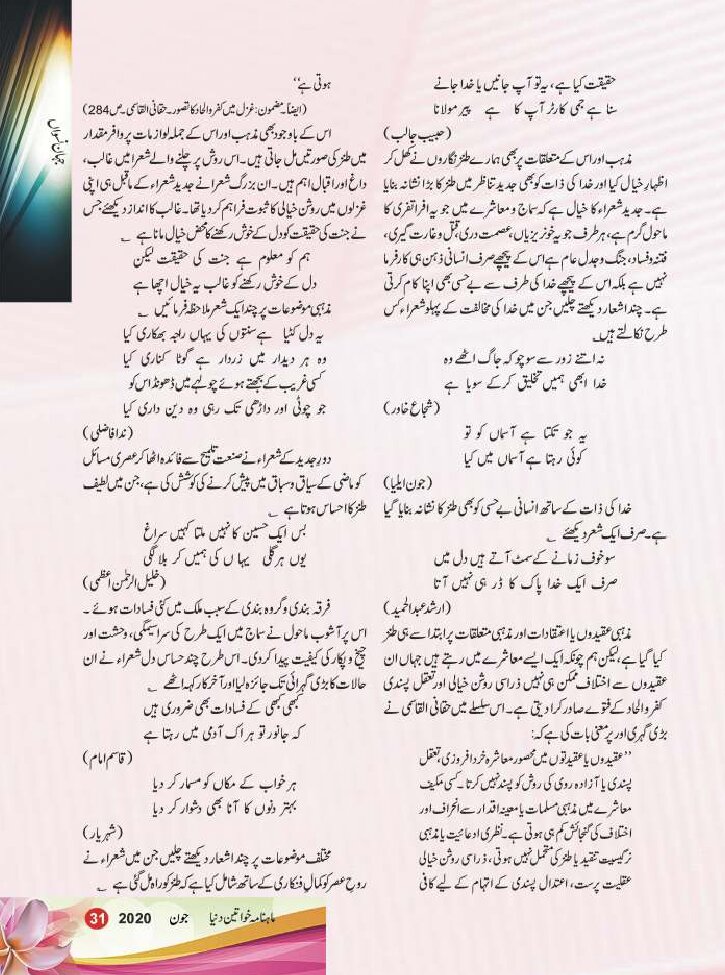 حقیقت کیا ہے، یہ تو آپ جانیں یا خدا جانے
سنا ہے جمی کارٹر آپ کا ہے پیر مولانا
(حبیب جالب)
مذہب اور اس کے متعلقات پر بھی ہمارے طنز نگاروں نے کھل کر
اظہارِ خیال کیا اور خدا کی ذات کو بھی جدید تناظر میں طنز کا بڑا نشانہ بنایا
ہے۔ جدید شعراء کا خیال ہے کہ سماج و معاشرے میں جو یہ افراتفری کا
ماحول گرم ہے، ہر طرف جو یہ خونریزیاں، عصمت دری، قتل و غارت گیری،
فتنہ و فساد، جنگ و جدل عام ہے اس کے پیچھے صرف انسانی ذہن ہی کارفرما
نہیں ہے بلکہ اس کے پیچھے خدا کی طرف سے بے حسی بھی اپنا کام کرتی
ہے۔ چند اشعار دیکھتے چلیں جن میں خدا کی مخالفت کے پہلو شعراء کس
طرح نکالتے ہیں
نہ اتنے زور سے سوچو کہ جاگ اٹھے وہ
خدا ابھی ہمیں تخلیق کرکے سویا ہے
(شجاع خاور)
یہ جو تکتا ہے آسماں کو تو
کوئی رہتا ہے آسماں میں کیا
(جون ایلیا)
خدا کی ذات کے ساتھ انسانی بے حسی کو بھی طنز کا نشانہ بنایا گیا
ہے۔ صرف ایک شعر دیکھئے
سو خوف زمانے کے سمٹ آتے ہیں دل میں
صرف ایک خدا پاک کا ڈر ہی نہیں آتا
(ارشد عبدالحمید)
مذہبی عقیدوں یا اعتقادات اور مذہبی متعلقات پر ابتدا سے ہی طنز
کیا گیا ہے، لیکن ہم چونکہ ایک ایسے معاشرے میں رہتے ہیں جہاں ان
عقیدوں سے اختلاف ممکن ہی نہیں ذرا سی روشن خیالی اور تعقل پسندی
کفر و الحاد کے فتوے صادر کرا دیتی ہے۔ اس سلسلے میں حقانی القاسمی نے
بڑی گہری اور پر معنی بات کی ہے کہ:
’’عقیدوں یا عقیدتوں میں محصور معاشرہ خرد افروزی، تعقل
پسندی یا آزادہ روی کی روش کو پسند نہیں کرتا۔ کسی مکیف
معاشرے میں مذہبی مسلمات یا معینہ اقدار سے انحراف اور
اختلاف کی گنجائش کم ہی ہوتی ہے۔ نظری ادعائیت یا مذہبی
نرگسیت تنقید یا طنز کی متحمل نہیں ہوتی، ذرا سی روشن خیالی
عقلیت پرست، اعتدال پسندی کے اتہام کے لیے کافی
ہوتی ہے‘‘
(ایضاً۔ مضمون: غزل میں کفر و الحاد کا تصور۔ حقانی القاسمی۔ ص284)
اس کے باوجود بھی مذہب اور اس کے جملہ لوازمات پر وافر مقدار
میں طنز کی صورتیں مل جاتی ہیں۔ اس روش پر چلنے والے شعرا میں غالب،
داغ اور اقبال اہم ہیں۔ ان بزرگ شعرا نے جدید شعراء کے ماقبل ہی اپنی
غزلوں میں روشن خیالی کا ثبوت فراہم کر دیا تھا۔ غالب کا انداز دیکھئے جس
نے جنت کی حقیقت کو دل کے خوش رکھنے کا محض خیال مانا ہے
ہم کو معلوم ہے جنت کی حقیقت لیکن
دل کے خوش رکھنے کو غالب یہ خیال اچھا ہے
مذہبی موضوعات پر چند ایک شعر ملاحظہ فرمائیں
یہ دل کٹیا ہے سنتوں کی یہاں راجہ بھکاری کیا
وہ ہر دیدار میں زردار ہے گوٹا کناری کیا
کسی غریب کے بجھتے ہوئے چولہے میں ڈھونڈ اس کو
جو چوٹی اور داڑھی تک رہی وہ دین داری کیا
(ندا فاضلی)
دورِ جدید کے شعراء نے صنعت تلمیح سے فائدہ اٹھا کر عصری مسائل
کو ماضی کے سیاق و سباق میں پیش کرنے کی کوشش کی ہے، جن میں لطیف
طنز کا احساس ہوتا ہے
بس ایک حسین کا نہیں ملتا کہیں سراغ
یوں ہر گلی یہاں کی ہمیں کربلا لگی
(خلیل الرحمٰن اعظمی)
فرقہ بندی و گروہ بندی کے سبب ملک میں کئی فسادات ہوئے۔
اس پر آشوب ماحول نے سماج میں ایک طرح کی سراسیمگی، وحشت اور
چیخ و پکار کی کیفیت پیدا کر دی۔ اس طرح چند حساس دل شعراء نے ان
حالات کا بڑی گہرائی تک جائزہ لیا اور آخر کار کہہ اٹھے
کبھی کبھی کے فسادات بھی ضروری ہیں
کہ جانور تو ہر اک آدمی میں رہتا ہے
(قاسم امام)
ہر خواب کے مکاں کو مسمار کر دیا
بہتر دنوں کا آنا بھی دشوار کر دیا
(شہریار)
مختلف موضوعات پر چند اشعار دیکھتے چلیں جن میں شعراء نے
روحِ عصر کو کمالِ فنکاری کے ساتھ شامل کیا ہے کہ طنز کو راہ مل گئی ہے
جہانِ نسواں
ماہنامہ خواتین دنیا جون 2020 31